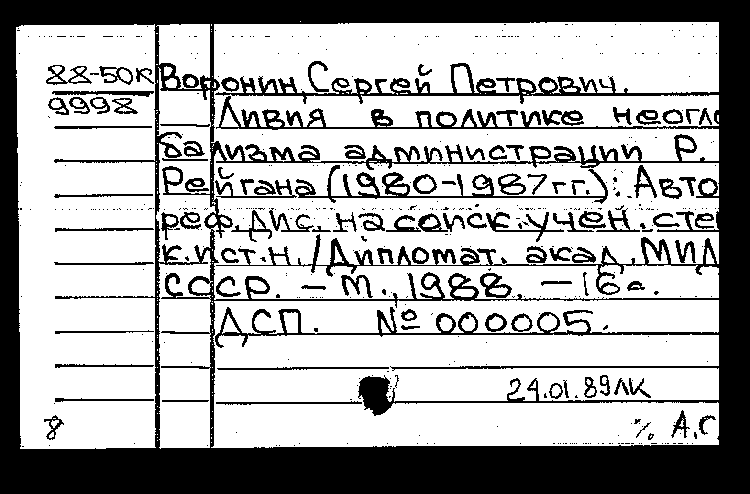 88-50К Воронин, Сергей Петрович.
9998
Ливия в политике неогло
бализма администрации Р.
Рейгана (1980-1987гг.): Авто
реф. дис. на соиск. учен. сте
к.ист.н. / Дипломат. акад. МИД
СССР. – М., 1988. – 16с.
ДСП. № 000005.
24.01.89ЛК
8
А.С.